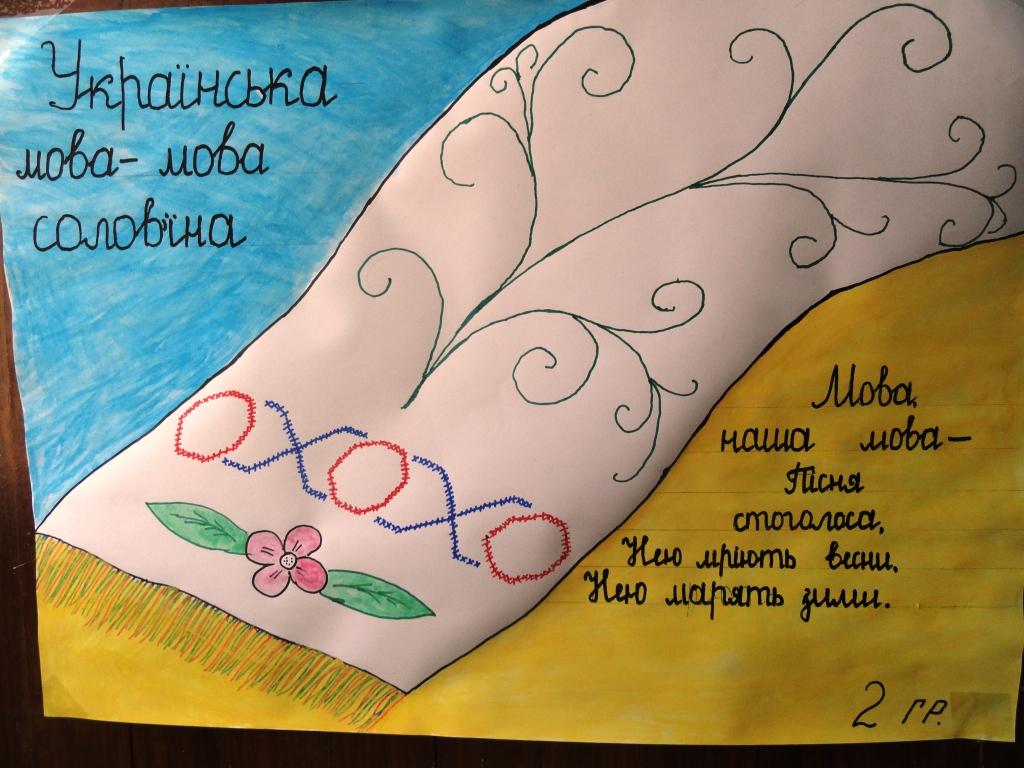 Українська
мова - мова
солов'їна
Мова,
наша мова -
Пісня
стоголоса,
Нею мріють весни,
Нею марять зими.
2 гр.